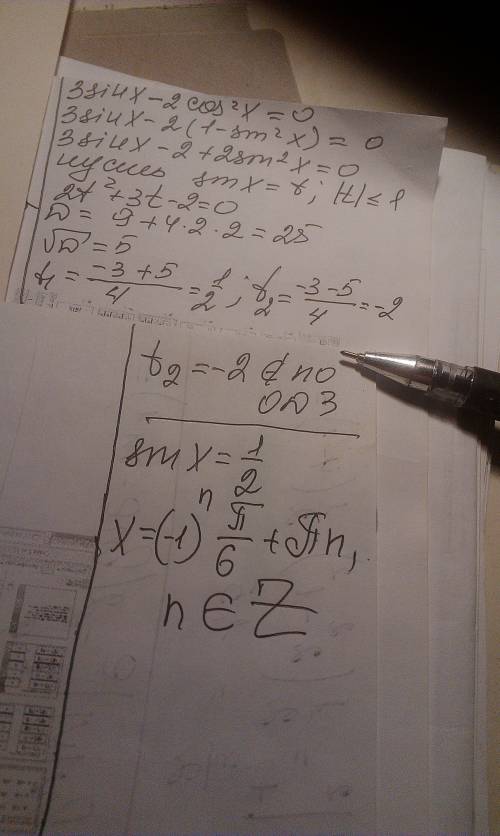 3sinx - 2cos²x = 0
3sinx - 2(1 - sin²x) = 0
3sinx - 2 + 2sin²x = 0
пусть sinx = t; |t| ≤ 1
2t² + 3t - 2 = 0
D = 9 + 4·2·2 = 25
√D = 5
t₁ = (-3 + 5)/4 = 1/2; t₂ = (-3 - 5)/4 = -2
t₂ = -2 ∉ по
ОДЗ
sinx = 1/2
x = (-1)ⁿ π/6 + πn,
n ∈ Z